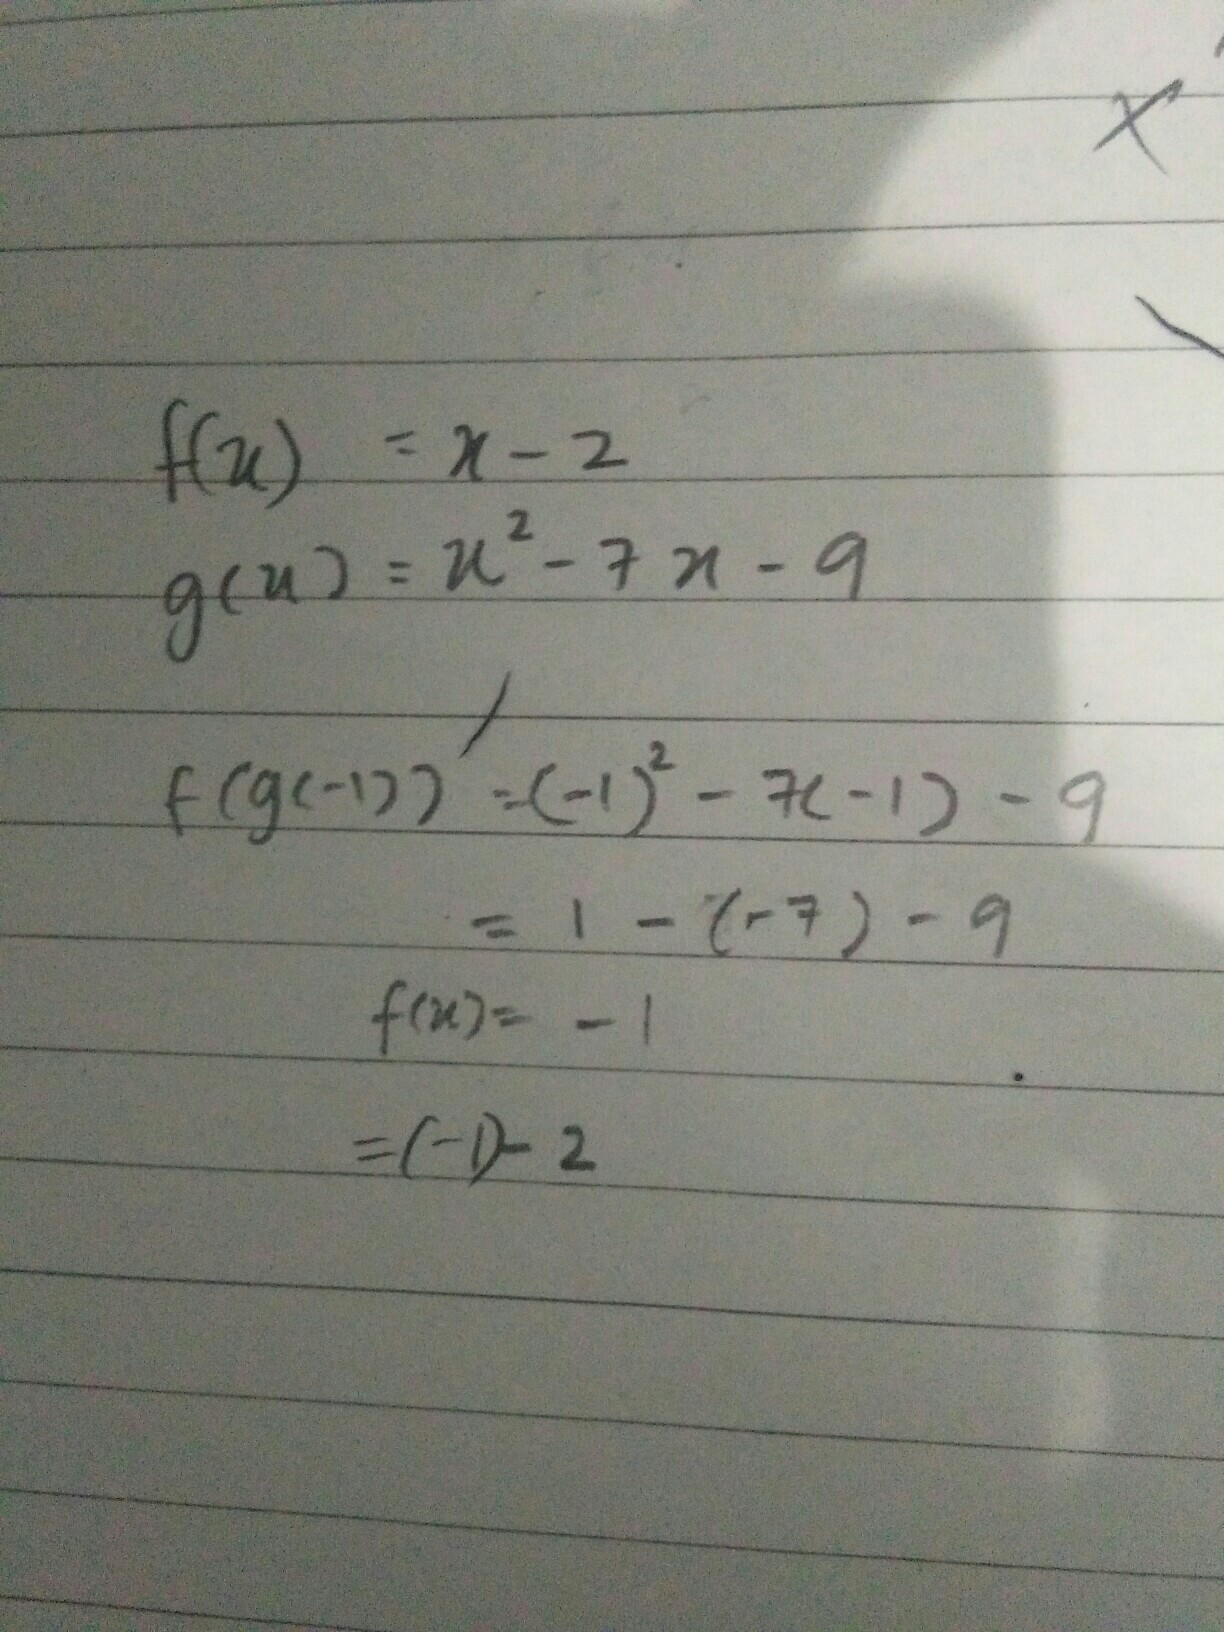 x
f(x) = x - 2
g(x) = x² - 7x - 9
f(g(-1)) = (-1)² - 7(-1) - 9
= 1 - (-7) - 9
f(x) = -1
= (-1) - 2